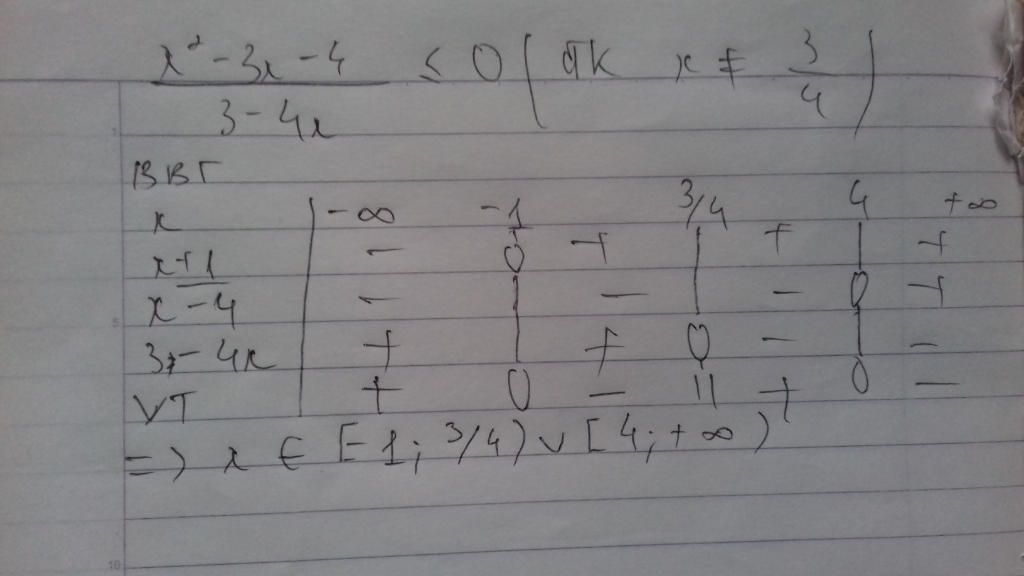 x² - 3x - 4 / 3 - 4x ≤ 0 ( đk x ≠ 3/4 )
BBT
x | -∞ -1 3/4 4 +∞
x+1 | - 0 + | + | +
x - 4 | - | - | - 0 +
3 - 4x | + | + 0 - | -
VT | + 0 - || + 0 -
=> x ∈ [-1; 3/4) ∪ [4; +∞)
5
10